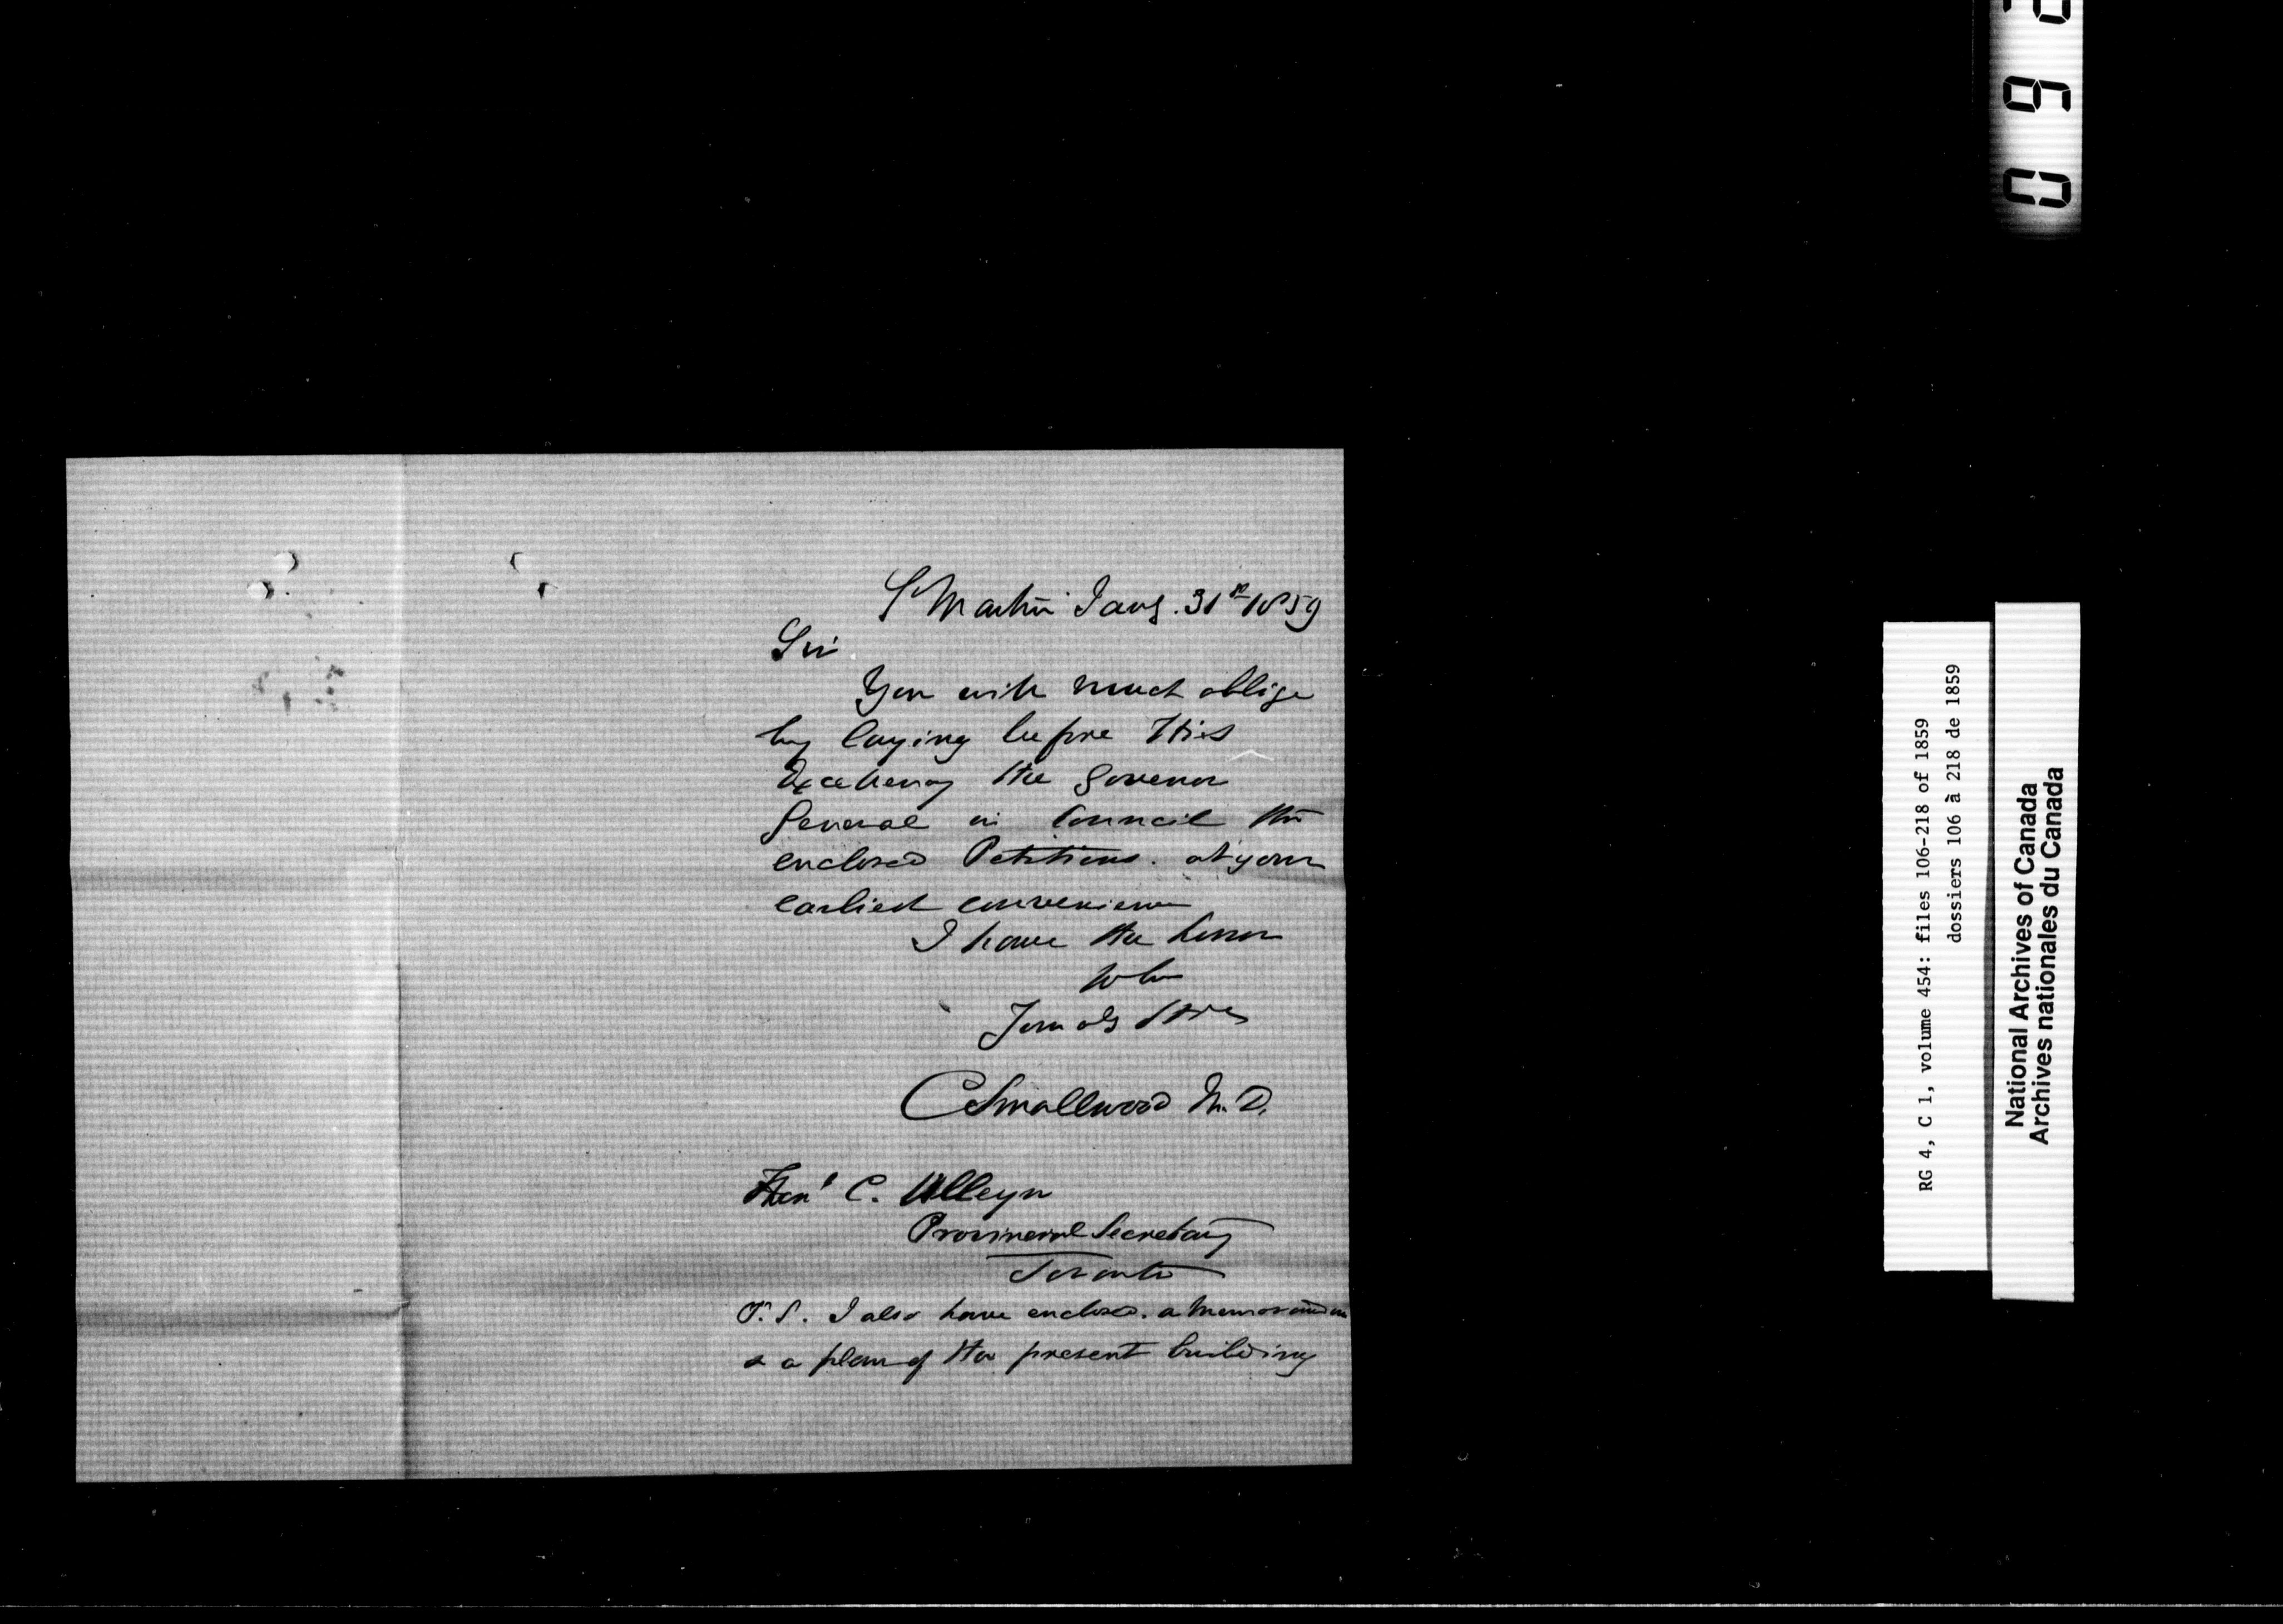 St Martin Jany. 31st 1859
Sir
You will much oblige
by laying before His
Excellency the Govenor
General in Council the
enclosed Petitions. at your
earliest convenience
I have the honor
to be
Your obt Svt
C Smallwood M.D.
Honl C. Alleyn
Provincial Secretary
Toronto
P.S. I also have enclosed. a Memorandum
& a plan of the present building
RG 4, C 1, volume 454: files 106-218 of 1859
dossiers 106 à 218 de 1859
National Archives of Canada
Archives nationales du Canada